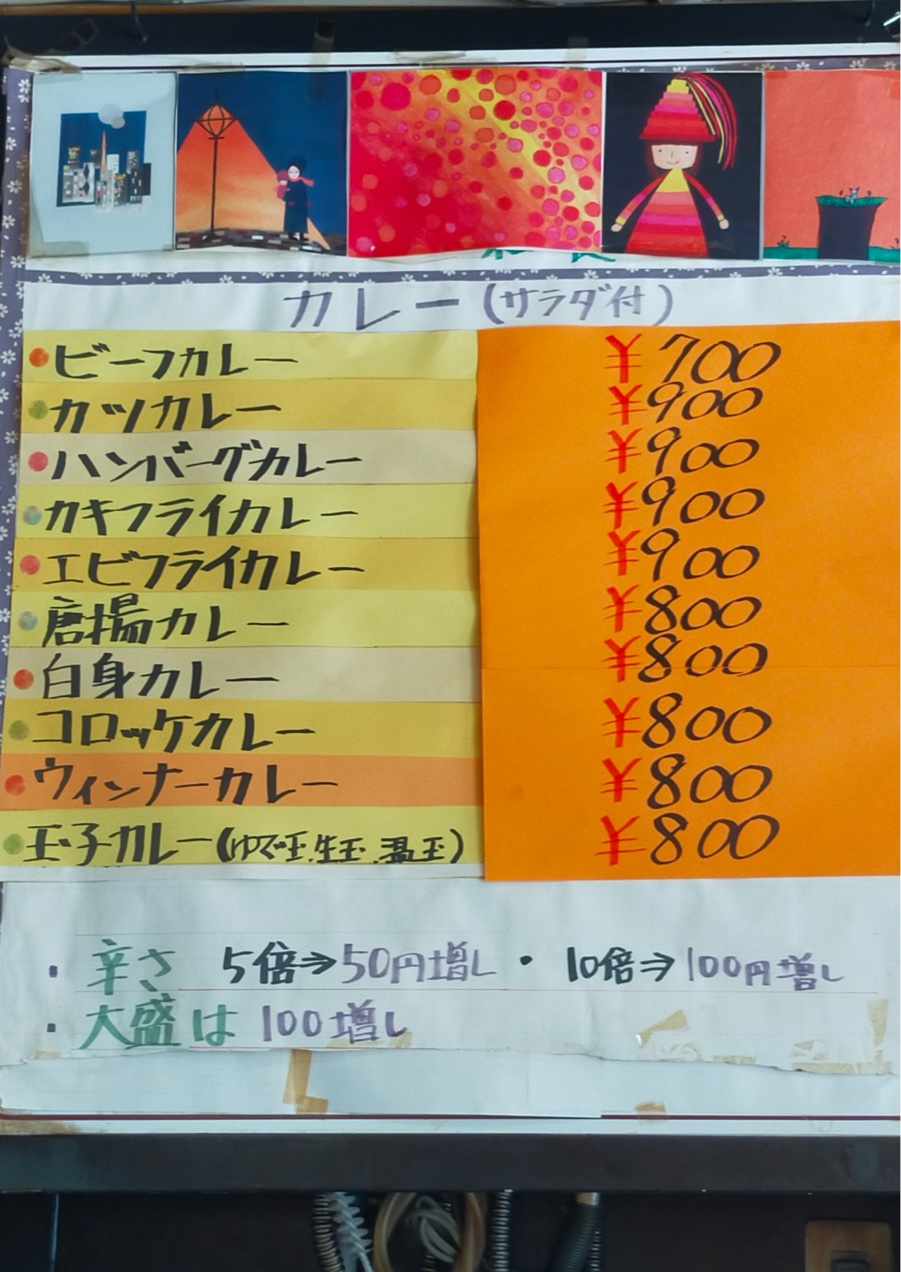 カレー(サラダ付)
・ビーフカレー ¥700
・カツカレー ¥900
・ハンバーグカレー ¥900
・カキフライカレー ¥900
・エビフライカレー ¥900
・唐揚カレー ¥800
・白身カレー ¥800
・コロッケカレー ¥800
・ウィンナーカレー ¥800
・玉子カレー(ゆで玉.生玉.温玉) ¥800
・辛さ 5倍⇒50円増し・10倍⇒100円増し
・大盛は 100増し